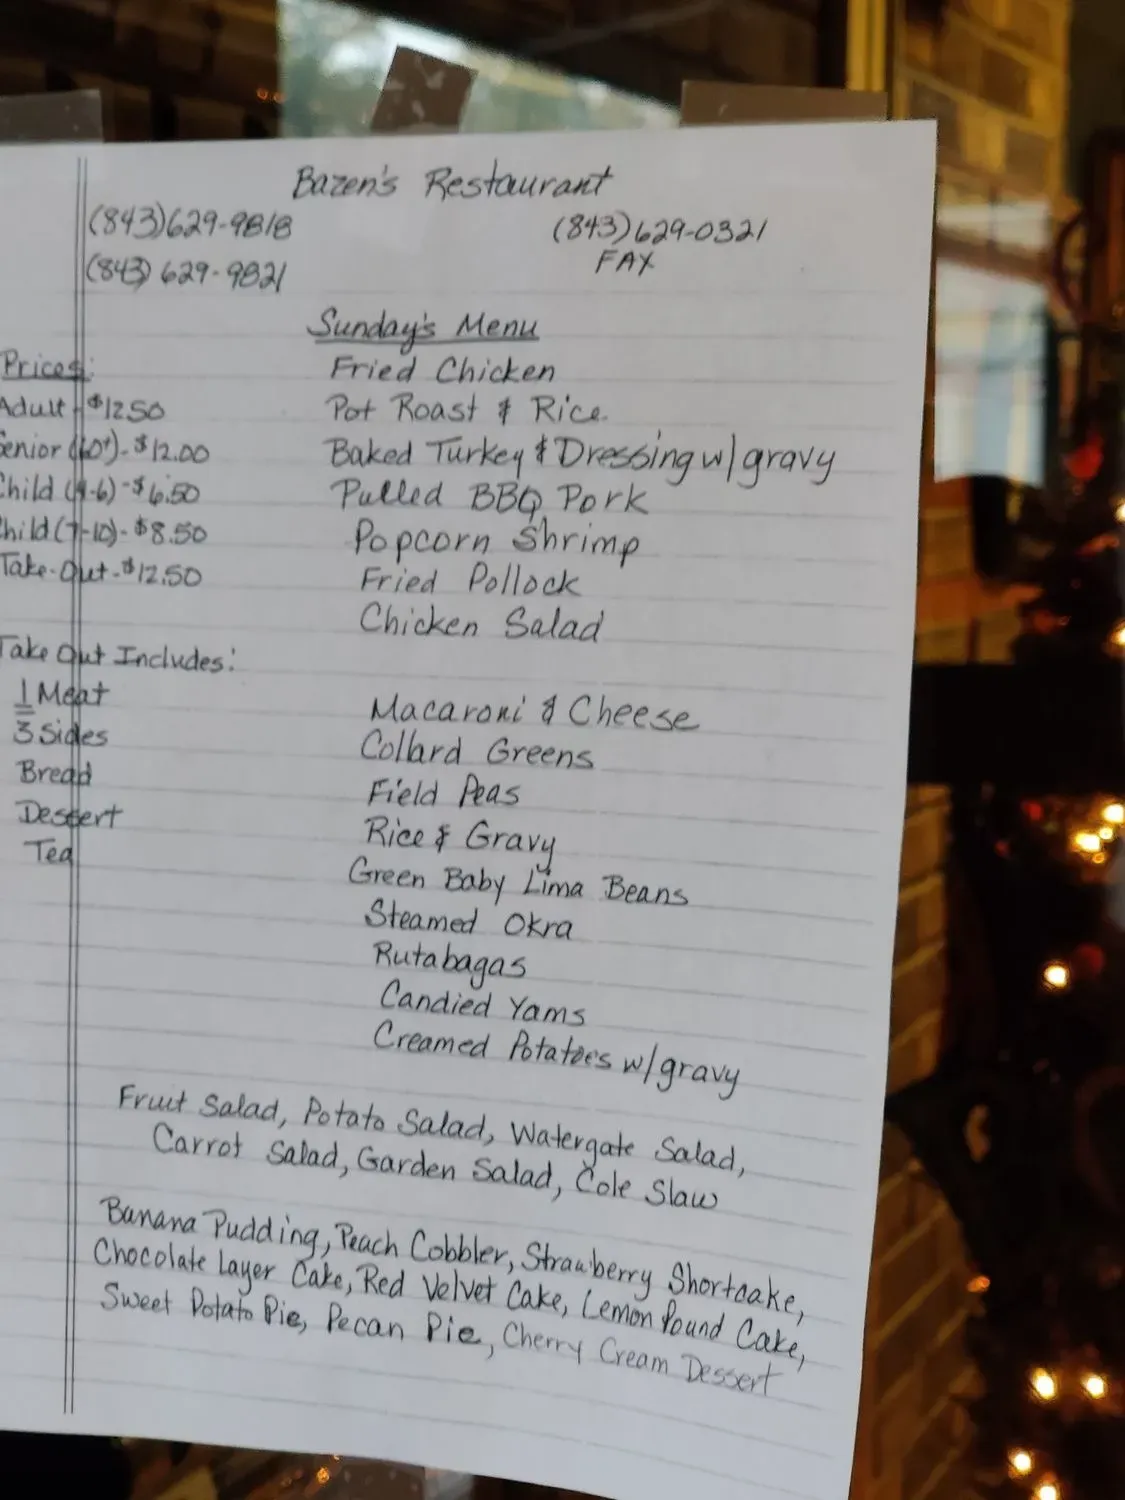 Bazen's Restaurant
(843)629-9818 (843)629-0321
(843) 629-9821 FAX
Sunday's Menu
Prices:
Adult - $12.50
Senior (60+) - $12.00
Child (4-6) - $6.50
Child (7-10) - $8.50
Take-Out - $12.50
Take Out Includes:
1 Meat
3 Sides
Bread
Dessert
Tea
Fried Chicken
Pot Roast & Rice
Baked Turkey & Dressing w/gravy
Pulled BBQ Pork
Popcorn Shrimp
Fried Pollock
Chicken Salad
Macaroni & Cheese
Collard Greens
Field Peas
Rice & Gravy
Green Baby Lima Beans
Steamed Okra
Rutabagas
Candied Yams
Creamed Potatoes w/gravy
Fruit Salad, Potato Salad, Watergate Salad,
Carrot Salad, Garden Salad, Cole Slaw
Banana Pudding, Peach Cobbler, Strawberry Shortcake,
Chocolate Layer Cake, Red Velvet Cake, Lemon Pound Cake,
Sweet Potato Pie, Pecan Pie, Cherry Cream Dessert